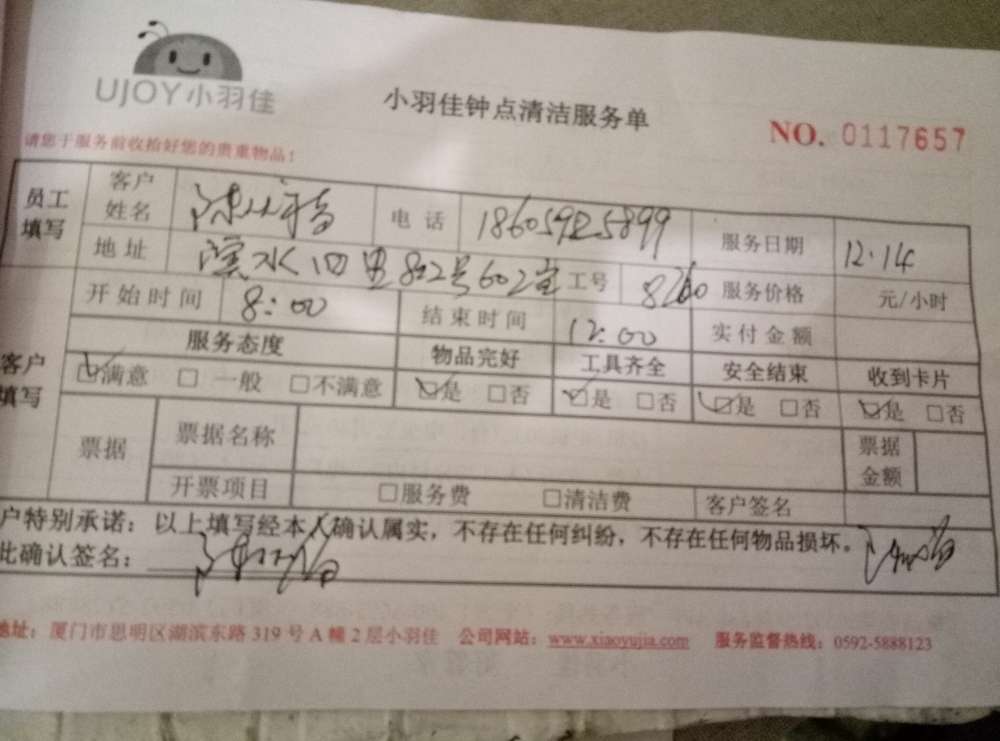 UJOY小羽佳
小羽佳钟点清洁服务单
NO. 0117657
请您于服务前收拾好您的贵重物品！
员工填写 客户姓名 陈 电话 18605925899 服务日期 12.14
地址 滨水四里802号602室 工号 8260 服务价格 元/小时
开始时间 8:00 结束时间 12:00 实付金额
客户填写 服务态度 物品完好 工具齐全 安全结束 收到卡片
☑满意 □一般 □不满意 ☑是 □否 ☑是 □否 ☑是 □否 ☑是 □否
票据 票据名称 票据金额
开票项目 □服务费 □清洁费 客户签名
户特别承诺：以上填写经本人确认属实，不存在任何纠纷，不存在任何物品损坏。
此确认签名：
地址：厦门市思明区湖滨东路319号A幢2层小羽佳 公司网站：www.xiaoyujia.com 服务监督热线：0592-5888123